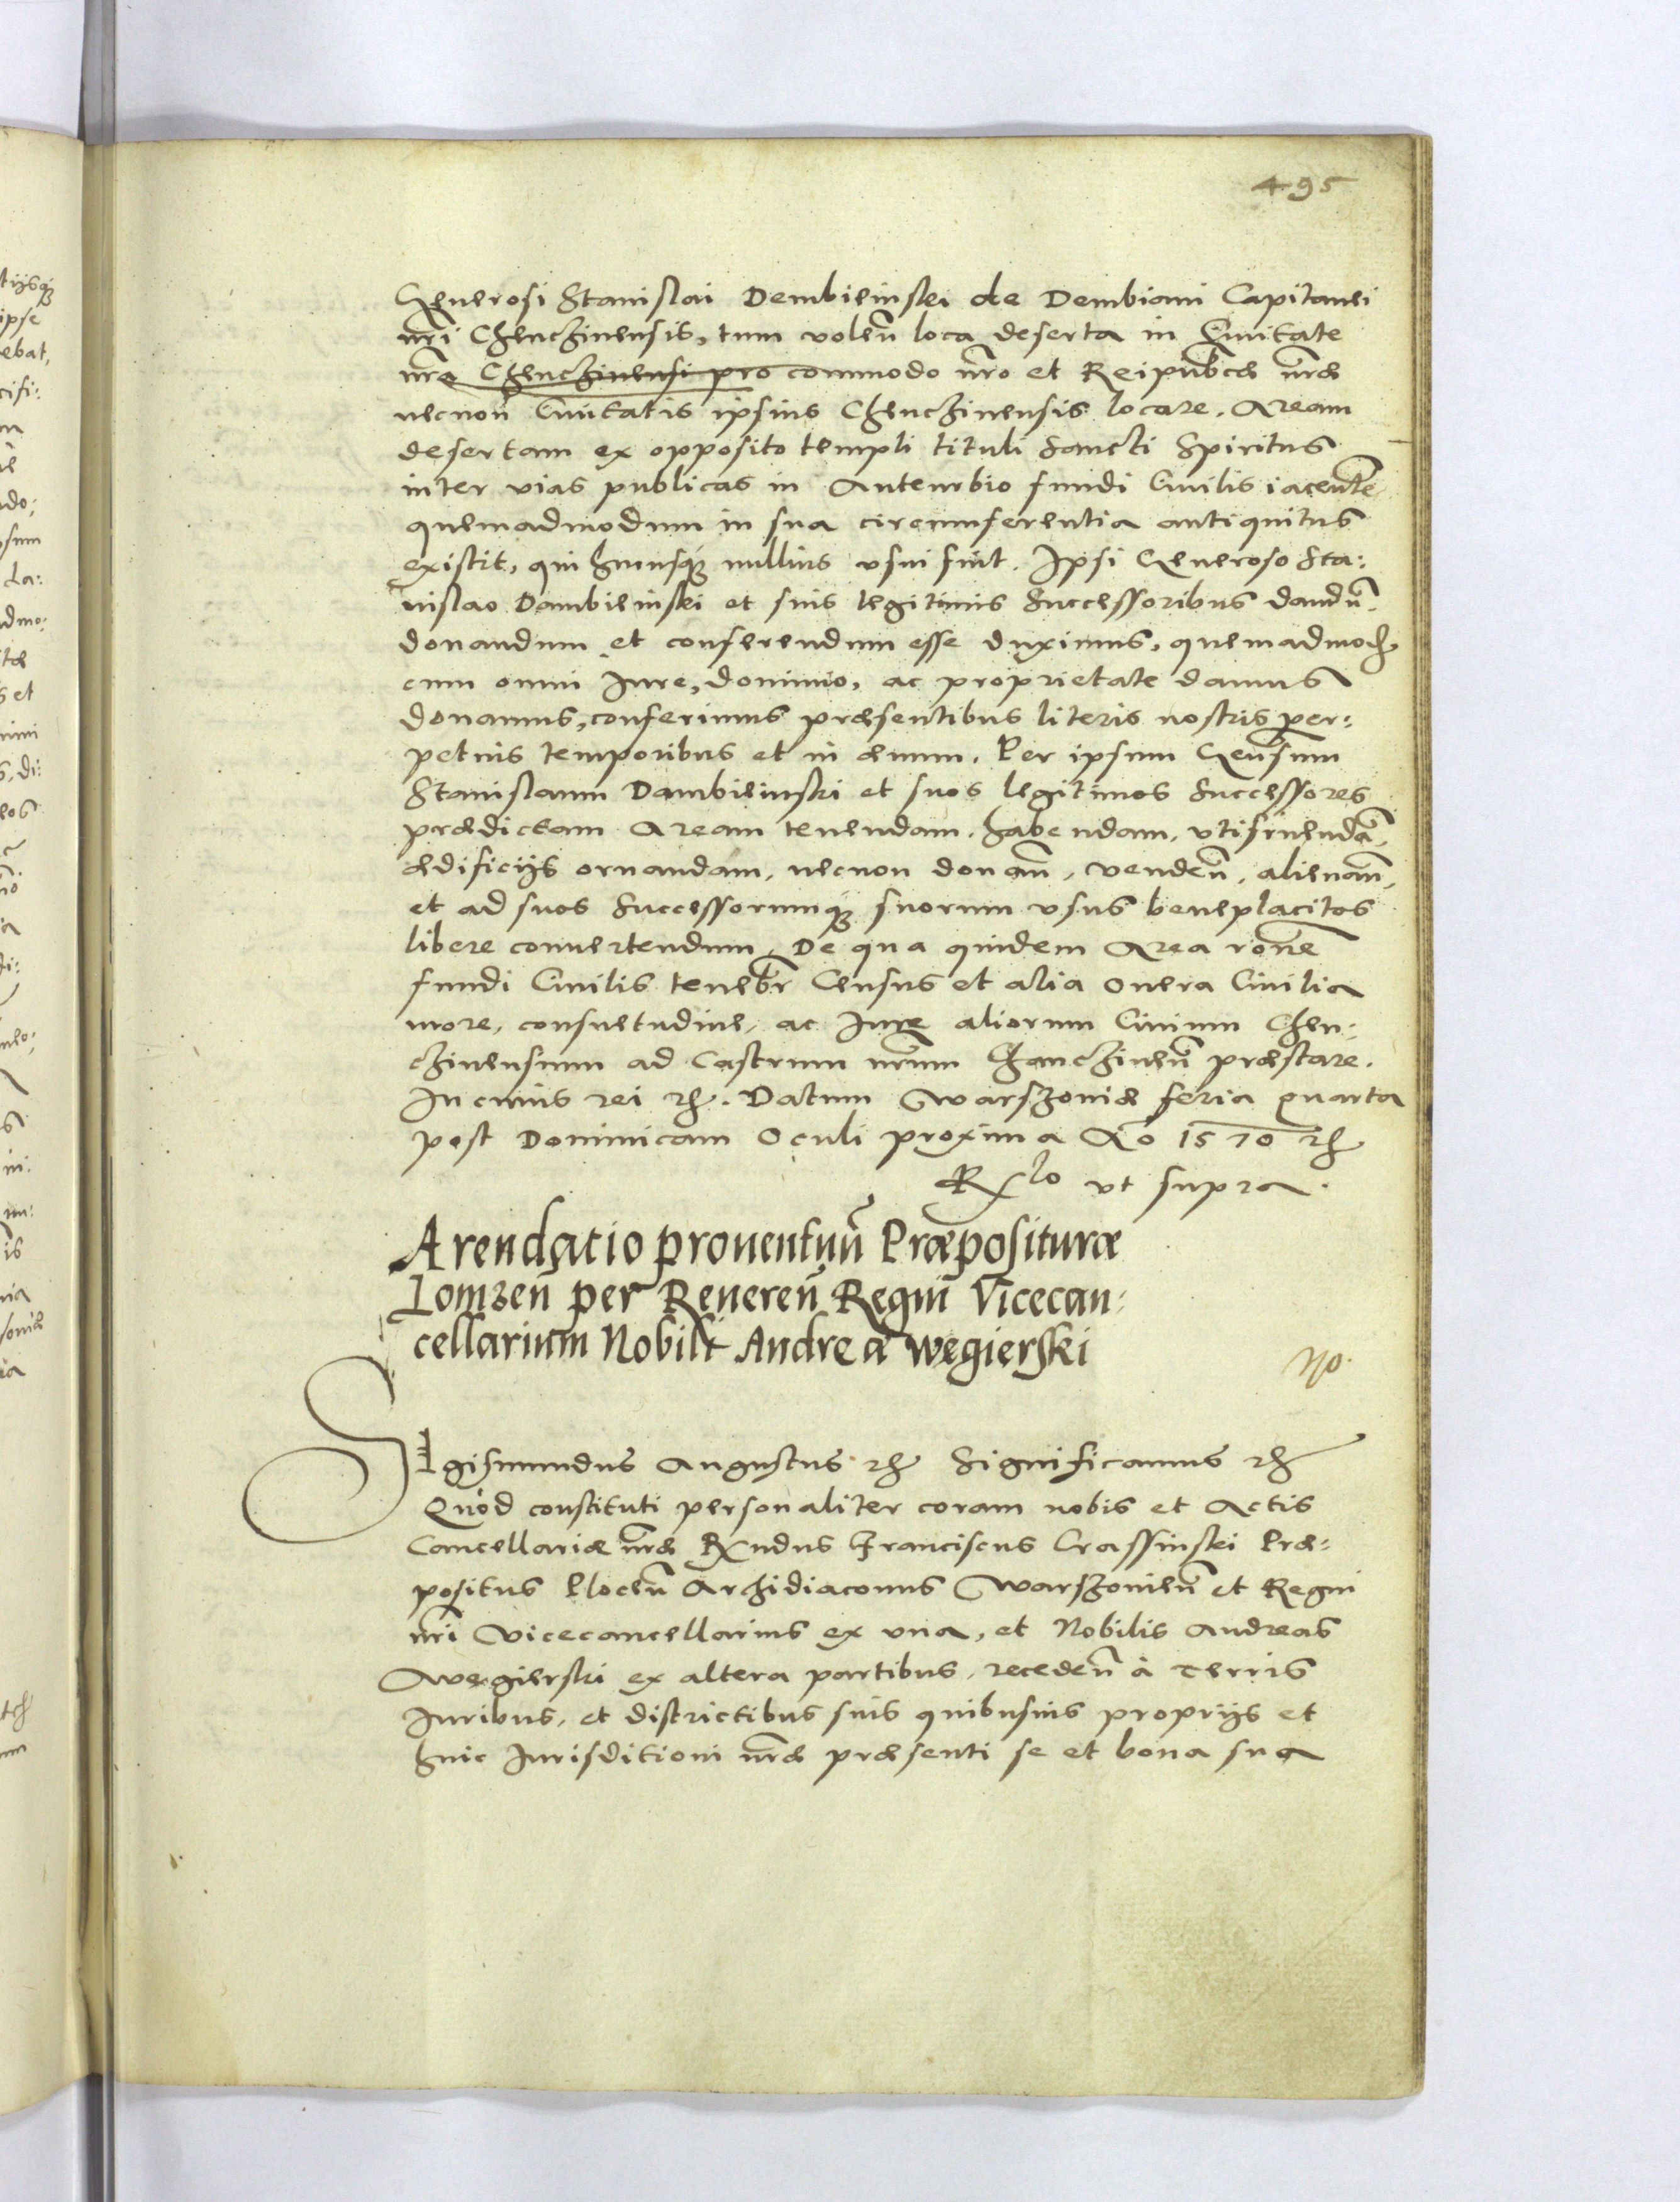 495
Generosi Stanislai Dembieinskj de Dembiani Capitanei
nr̃i Chenczinensis, tum volen̄ loca deserta in Ciuitate
nr̃a Chenczinensi pro commodo nr̃o et Reipub̃cæ nr̃æ
necnon Ciuitatis ipsius Chenczinensis locare. Aream
desertam ex opposito templi tituli Sancti Spiritus
inter vias publicas in Anteurbio fundi Ciuilis iacente͂
quemadmodum in sua circumferentia antiquitus
existit, qui hucusq̃ nullius vsui fuit. Ipsi Generoso Sta:
nislao Dambieinski et suis legitimis Successoribus dandu͂
donandum et conferendum esse duximus, quemadmod̃
cum omni Iure, dominio, ac proprietate damus
donamus, conferimus præsentibus literis nostris per:
petuis temporibus et in æuum. Per ipsum Gen̄sum
Stanislaum Dambieinski et suos legitimos Successores
prædictam Aream tenendam, habendam, vtifruendã,
ædificijs ornandam, necnon donan̄, venden̄, alienan̄,
et ad suos Successorumq̃ suorum vsus beneplacitos
libere conuertendum. De qua quidem Area rõne
fundi Ciuilis tenebr̃ Census et alia onera Ciuilia
more, consuetudine, ac Iure aliorum Ciuium Chen:
czinensium ad Castrum nr̃um Chanczinen̄ præstare.
In cuius rei rę. Datum Warszouiæ feria quarta
post Dominicam Oculi proxima Ao͂ 1570 rę
Rlo vt supra.
Arendatio prouentuũ Præposituræ
Lomzen̄ per Reueren̄ Regni Vicecan:
cellarium Nobili Andreæ Wegierski
No.
SIgismundus Augustus rę Significamus rę
Quod constituti personaliter coram nobis et Actis
Cancellariæ nr̃æ Rx̃ndus Franciscus Crassinski Præ:
positus Plocen̄ Archidiaconus Warszouien̄ et Regni
nr̃i Vicecancellarius ex vna, et Nobilis Andreas
Wegierski ex altera partibus, receden̄ à Terris
Iuribus, et districtibus suis quibusuis proprijs et
huic Iurisditioni nr̃æ præsenti se et bona sua